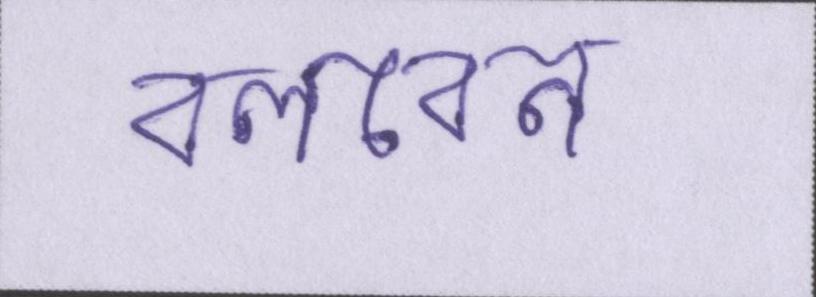 বলবেন